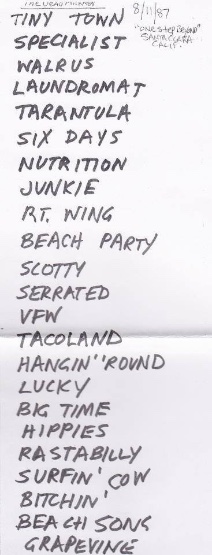 THE DEAD MILKMEN
8/11/87
"ONE STEP BEYOND"
SANTA CLARA
CALIF.
TINY TOWN
SPECIALIST
WALRUS
LAUNDROMAT
TARANTULA
SIX DAYS
NUTRITION
JUNKIE
RT. WING
BEACH PARTY
SCOTTY
SERRATED
VFW
TACOLAND
HANGIN' 'ROUND
LUCKY
BIG TIME
HIPPIES
RASTABILLY
SURFIN' COW
BITCHIN'
BEACH SONG
GRAPEVINE